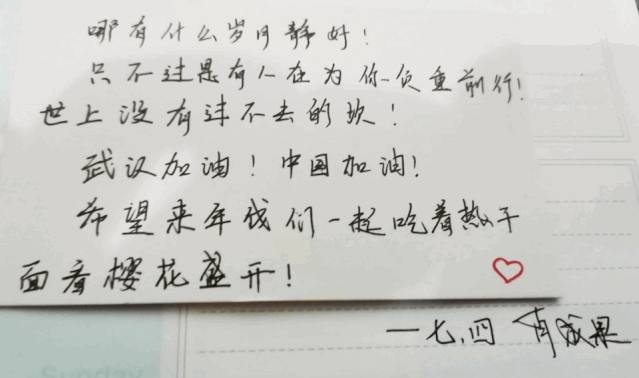 哪有什么岁月静好！
只不过是有人在为你负重前行！
世上没有过不去的坎！
武汉加油！中国加油！
希望来年我们一起吃着热干
面看樱花盛开！
一七.四 肖成果
Sunday